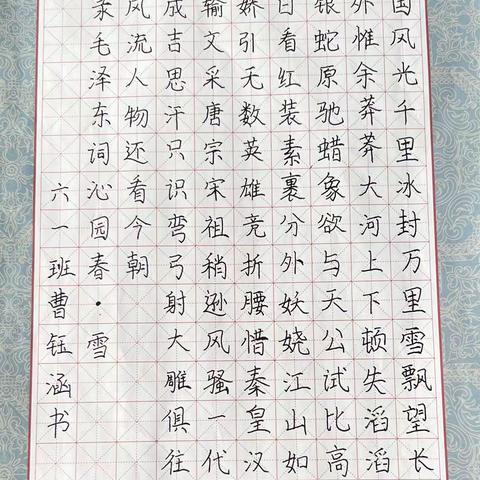 国风光千里冰封万里雪飘望长
外惟余莽莽大河上下顿失滔滔
银蛇原驰蜡象欲与天公试比高
日看红装素裹分外妖娆江山如
娇引无数英雄竞折腰惜秦皇汉
输文采唐宗宋祖稍逊风骚一代
成吉思汗只识弯弓射大雕俱往
风流人物还看今朝
录毛泽东词沁园春·雪
六一班曹钰涵书